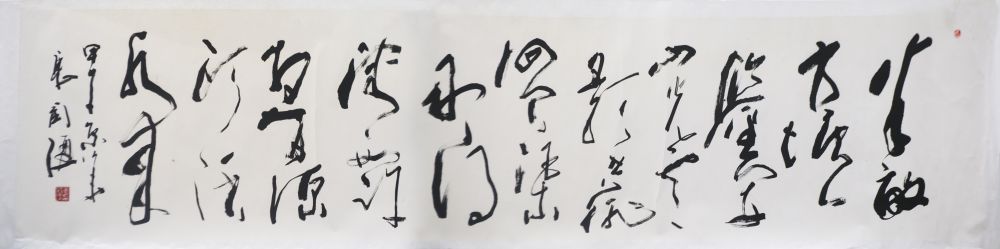 半畝
方塘一
鑑開天
光雲
影共徘
徊問渠
那得
清如許
為有源
頭活
水來
甲午